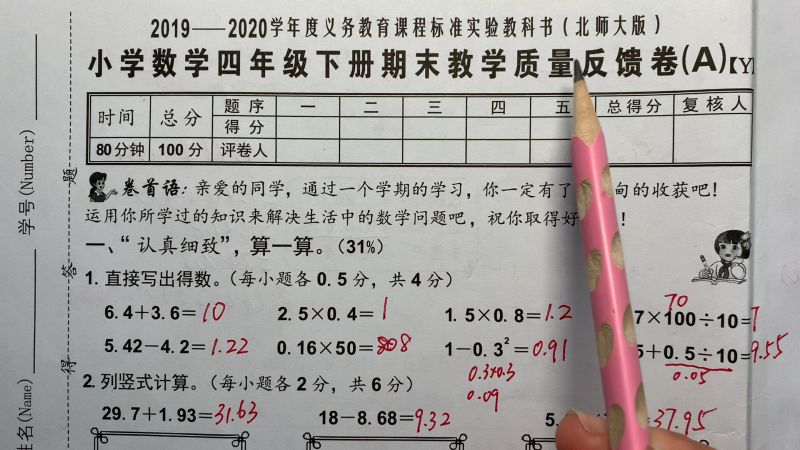 2019——2020学年度义务教育课程标准实验教科书（北师大版）
小学数学四年级下册期末教学质量反馈卷(A)【Y
时间 总分 题序 一 二 三 四 五 总得分 复核人
得分
80分钟 100分 评卷人
卷首语：亲爱的同学，通过一个学期的学习，你一定有了 甸的收获吧！
运用你所学过的知识来解决生活中的数学问题吧，祝你取得好 ！
一、“认真细致”，算一算。（31%）
1. 直接写出得数。（每小题各0.5分，共4分）
70
6.4+3.6=10 2.5×0.4=1 1.5×0.8=1.2 7×100÷10=7
5.42－4.2=1.22 0.16×50=8 1－0.3²=0.91 5+0.5÷10=9.55
0.3×0.3 0.05
0.09
2. 列竖式计算。（每小题各2分，共6分）
29.7+1.93=31.63 18－8.68=9.32 =37.95
学号(Number)
姓名(Name)
题
答
得